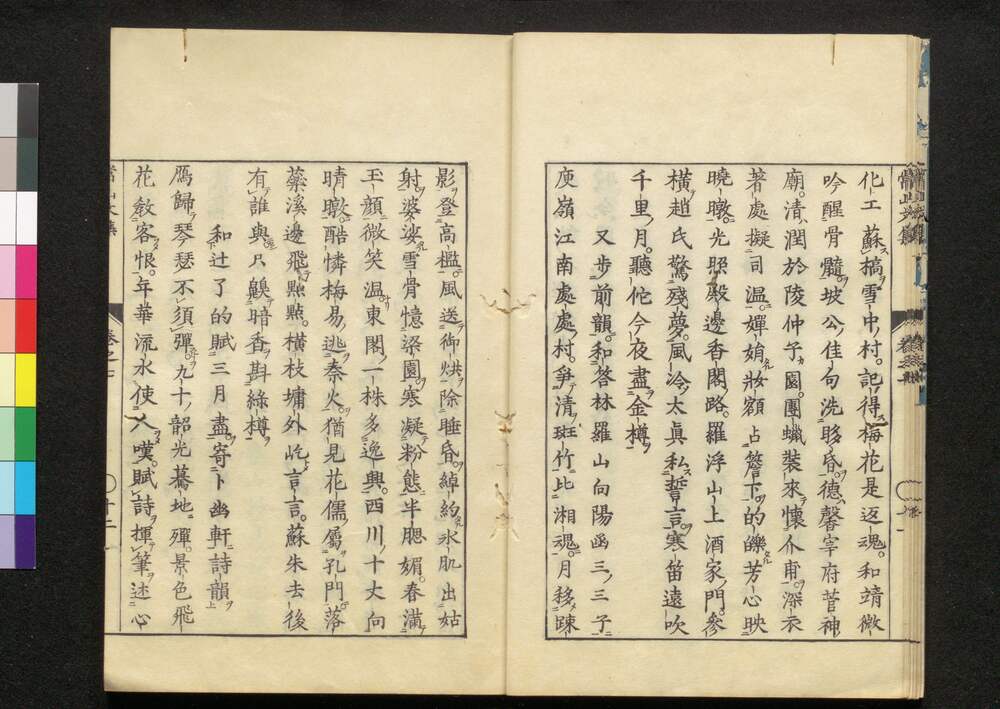 化工蘇搞雪中村記得梅花是返魂和靖微
吟醒骨髓坡公佳句洗眵昏德馨宰府菅神
廟清潤於陵仲子園團蠟裝來懷介甫深衣
著處擬司温嬋娟妝額占簷下的皪芳心映
曉暾光照殿邊香閣路羅浮山上酒家門參
橫趙氏驚殘夢風冷太真私誓言寒笛遠吹
千里月聽佗今夜盡金樽
又步前韻和答林羅山向陽函三三子
庾嶺江南處處村爭清斑竹比湘魂月移踈
影登高檻風送御烘除睡昏綽約氷肌出姑
射婆娑雪骨憶梁園寒凝粉態半腮媚春滿
玉顔微笑温東閣一株多逸興西川十丈向
晴暾酷憐梅易逃秦火猶見花儒屬孔門落
蘂溪邊飛點點橫枝墉外屹言言蘇朱去後
有誰與只齅暗香斟綠樽
和辻了的賦三月盡寄卜幽軒詩韻
鴈歸琴瑟不須彈九十韶光驀地殫景色飛
花敎客恨年華流水使人嘆賦詩揮筆述心
卷之七
十二